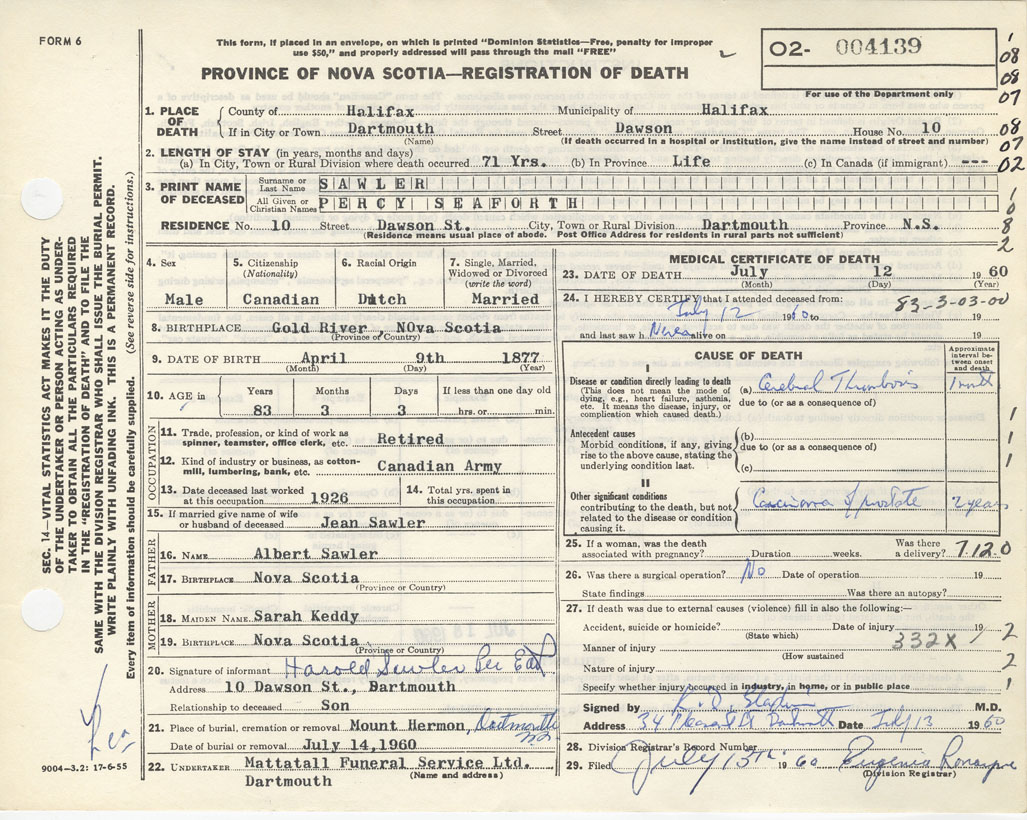 FORM 6
This form, if placed in an envelope, on which is printed "Dominion Statistics—Free, penalty for improper
use $50," and properly addressed will pass through the mail "FREE"
PROVINCE OF NOVA SCOTIA—REGISTRATION OF DEATH
O2- 004139
For use of the Department only
1. PLACE OF DEATH { County of Halifax Municipality of Halifax
If in City or Town Dartmouth Street Dawson House No. 10
(Name) (If death occurred in a hospital or institution, give the name instead of street and number)
2. LENGTH OF STAY (in years, months and days)
(a) In City, Town or Rural Division where death occurred 71 Yrs. (b) In Province Life (c) In Canada (if immigrant) ---
3. PRINT NAME OF DECEASED
Surname or Last Name SAWLER
All Given or Christian Names PERCY SEAFORTH
RESIDENCE No. 10 Street Dawson St. City, Town or Rural Division Dartmouth Province N.S.
(Residence means usual place of abode. Post Office Address for residents in rural parts not sufficient)
4. Sex Male
5. Citizenship (Nationality) Canadian
6. Racial Origin Dutch
7. Single, Married, Widowed or Divorced (write the word) Married
8. BIRTHPLACE Gold River, NOva Scotia
(Province or Country)
9. DATE OF BIRTH April 9th 1877
(Month) (Day) (Year)
10. AGE in Years 83 Months 3 Days 3 If less than one day old hrs. or min.
OCCUPATION
11. Trade, profession, or kind of work as spinner, teamster, office clerk, etc. Retired
12. Kind of industry or business, as cotton-mill, lumbering, bank, etc. Canadian Army
13. Date deceased last worked at this occupation 1926
14. Total yrs. spent in this occupation
15. If married give name of wife or husband of deceased Jean Sawler
FATHER
16. NAME Albert Sawler
17. BIRTHPLACE Nova Scotia
(Province or Country)
MOTHER
18. MAIDEN NAME Sarah Keddy
19. BIRTHPLACE Nova Scotia
(Province or Country)
20. Signature of informant Harold Sawler Per
Address 10 Dawson St., Dartmouth
Relationship to deceased Son
21. Place of burial, cremation or removal Mount Hermon, Dartmouth NS
Date of burial or removal July 14,1960
22. UNDERTAKER Mattatall Funeral Service Ltd.
(Name and address)
Dartmouth
9004-3.2: 17-6-55
MEDICAL CERTIFICATE OF DEATH
23. DATE OF DEATH July 12 1960
(Month) (Day) (Year)
24. I HEREBY CERTIFY that I attended deceased from: 83-3-03-00
July 12 1960 to 19
and last saw h Never alive on 19
CAUSE OF DEATH
Approximate interval between onset and death
I
Disease or condition directly leading to death (a) Cerebral Thrombosis 1 month
(This does not mean the mode of dying, e.g., heart failure, asthenia, etc. It means the disease, injury, or complication which caused death.)
due to (or as a consequence of)
Antecedent causes (b)
Morbid conditions, if any, giving rise to the above cause, stating the underlying condition last.
due to (or as a consequence of)
(c)
II
Other significant conditions contributing to the death, but not related to the disease or condition causing it. Carcinoma of prostate 2 years
25. If a woman, was the death associated with pregnancy? Duration weeks. Was there a delivery? 7.120
26. Was there a surgical operation? No Date of operation 19
State findings Was there an autopsy?
27. If death was due to external causes (violence) fill in also the following:—
Accident, suicide or homicide? Date of injury 19
(State which)
Manner of injury 332X
(How sustained
Nature of injury
Specify whether injury occurred in industry, in home, or in public place
Signed by M.D.
Address 34 Date July 13 1960
28. Division Registrar's Record Number
29. Filed July 15th 1960 Eugenia
(Division Registrar)
SEC. 14—VITAL STATISTICS ACT MAKES IT THE DUTY
OF THE UNDERTAKER OR PERSON ACTING AS UNDER-
TAKER TO OBTAIN ALL THE PARTICULARS REQUIRED
IN THE "REGISTRATION OF DEATH" AND TO FILE THE
SAME WITH THE DIVISION REGISTRAR WHO SHALL ISSUE THE BURIAL PERMIT.
WRITE PLAINLY WITH UNFADING INK. THIS IS A PERMANENT RECORD.
Every item of information should be carefully supplied. (See reverse side for instructions.)
1
08
08
07
08
07
02
1
0
8
2
1
1
1
2
2
1